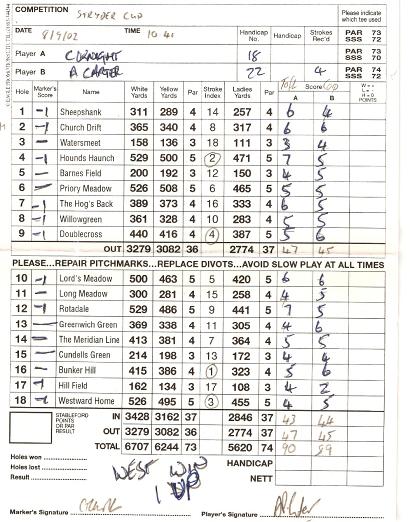 COMPETITION STRYDER CUP
Please indicate which tee used
DATE 8/9/02 TIME 10 41 Handicap No. Handicap Strokes Rec'd PAR 73 SSS 72
Player A 18 PAR 73 SSS 70
Player B A CARTER 22 4 PAR 74 SSS 72
Hole Marker's Score Name White Yards Yellow Yards Par Stroke Index Ladies Yards Par Score A B W = + L = - H = 0 POINTS
1 -1 Sheepshank 311 289 4 14 257 4 6 4
2 - Church Drift 365 340 4 8 317 4 6 6
3 - Watersmeet 158 136 3 18 111 3 3 4
4 -1 Hounds Haunch 529 500 5 2 471 5 7 5
5 - Barnes Field 200 192 3 12 150 3 4 5
6 - Priory Meadow 526 508 5 6 465 5 5 5
7 -1 The Hog's Back 389 373 4 16 333 4 6 5
8 - Willowgreen 361 328 4 10 283 4 5 5
9 -1 Doublecross 440 416 4 4 387 5 5 6
OUT 3279 3082 36 2774 37 47 45
PLEASE...REPAIR PITCHMARKS...REPLACE DIVOTS...AVOID SLOW PLAY AT ALL TIMES
10 -1 Lord's Meadow 500 463 5 5 420 5 6 6
11 - Long Meadow 300 281 4 15 258 4 4 5
12 +1 Rotadale 529 486 5 9 441 5 7 5
13 - Greenwich Green 369 338 4 11 305 4 4 6
14 - The Meridian Line 413 381 4 7 364 4 5 5
15 - Cundells Green 214 198 3 13 172 3 4 4
16 - Bunker Hill 415 386 4 1 323 4 5 6
17 +1 Hill Field 162 134 3 17 108 3 4 2
18 -1 Westward Home 526 495 5 3 455 5 4 5
STABLEFORD POINTS OR PAR RESULT
IN 3428 3162 37 2846 37 43 44
OUT 3279 3082 36 2774 37 47 45
TOTAL 6707 6244 73 5620 74 90 89
Holes won
Holes lost
Result WEST WIN 1 UP
HANDICAP
NETT
Marker's Signature Player's Signature